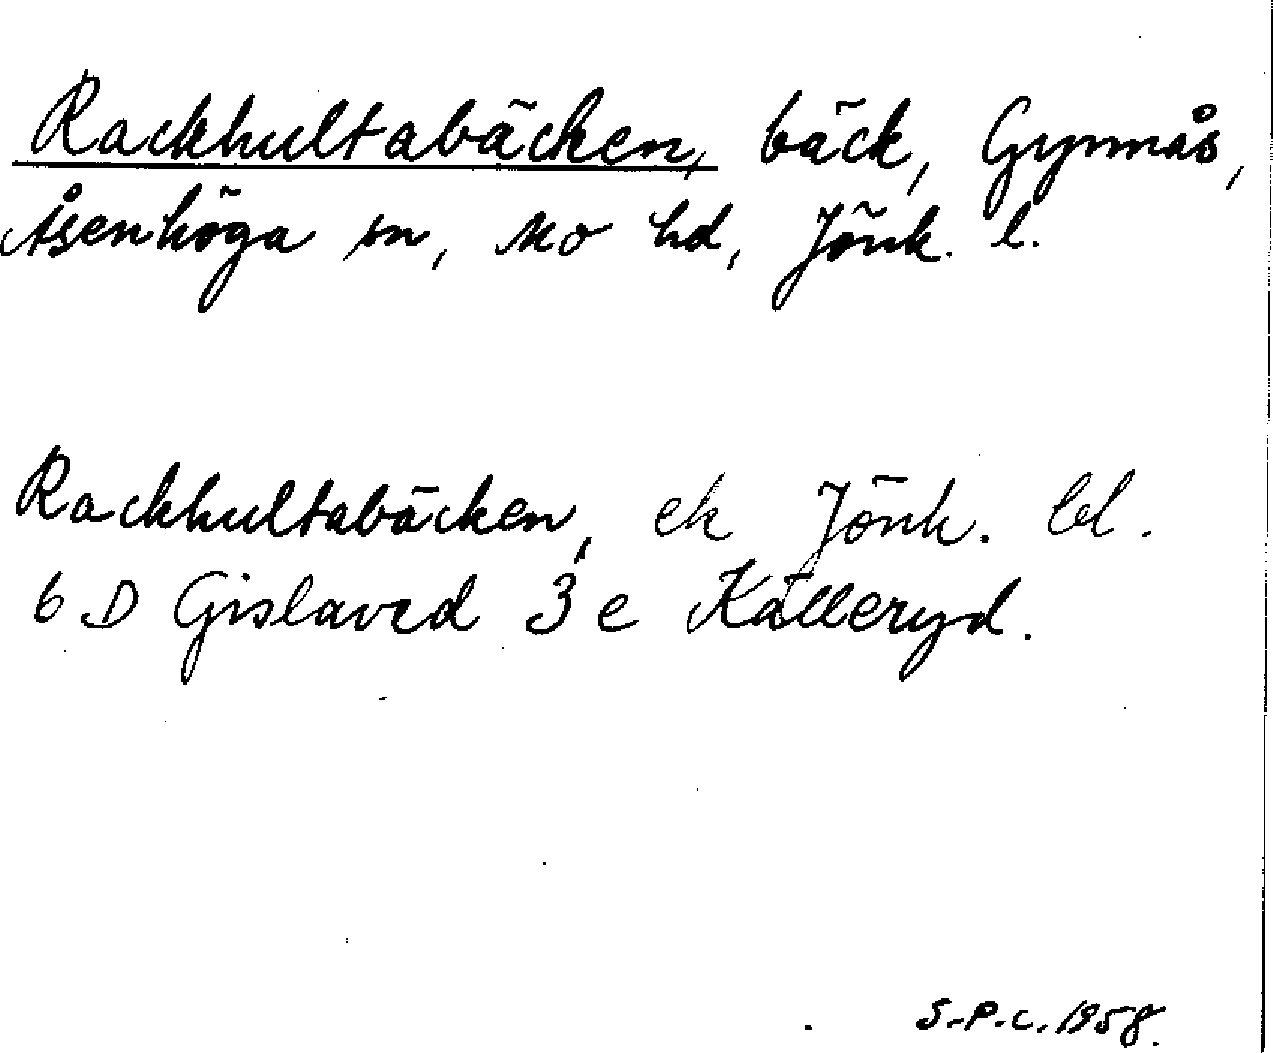 Rackhultabäcken, bäck, Gynnås,
Åsenhöga sn, Mo hd, Jönk. l.
Rackhultabäcken, ek Jönk. bl.
6 D Gislaved 3 e Källeryd.
S.-P.C. 1958.